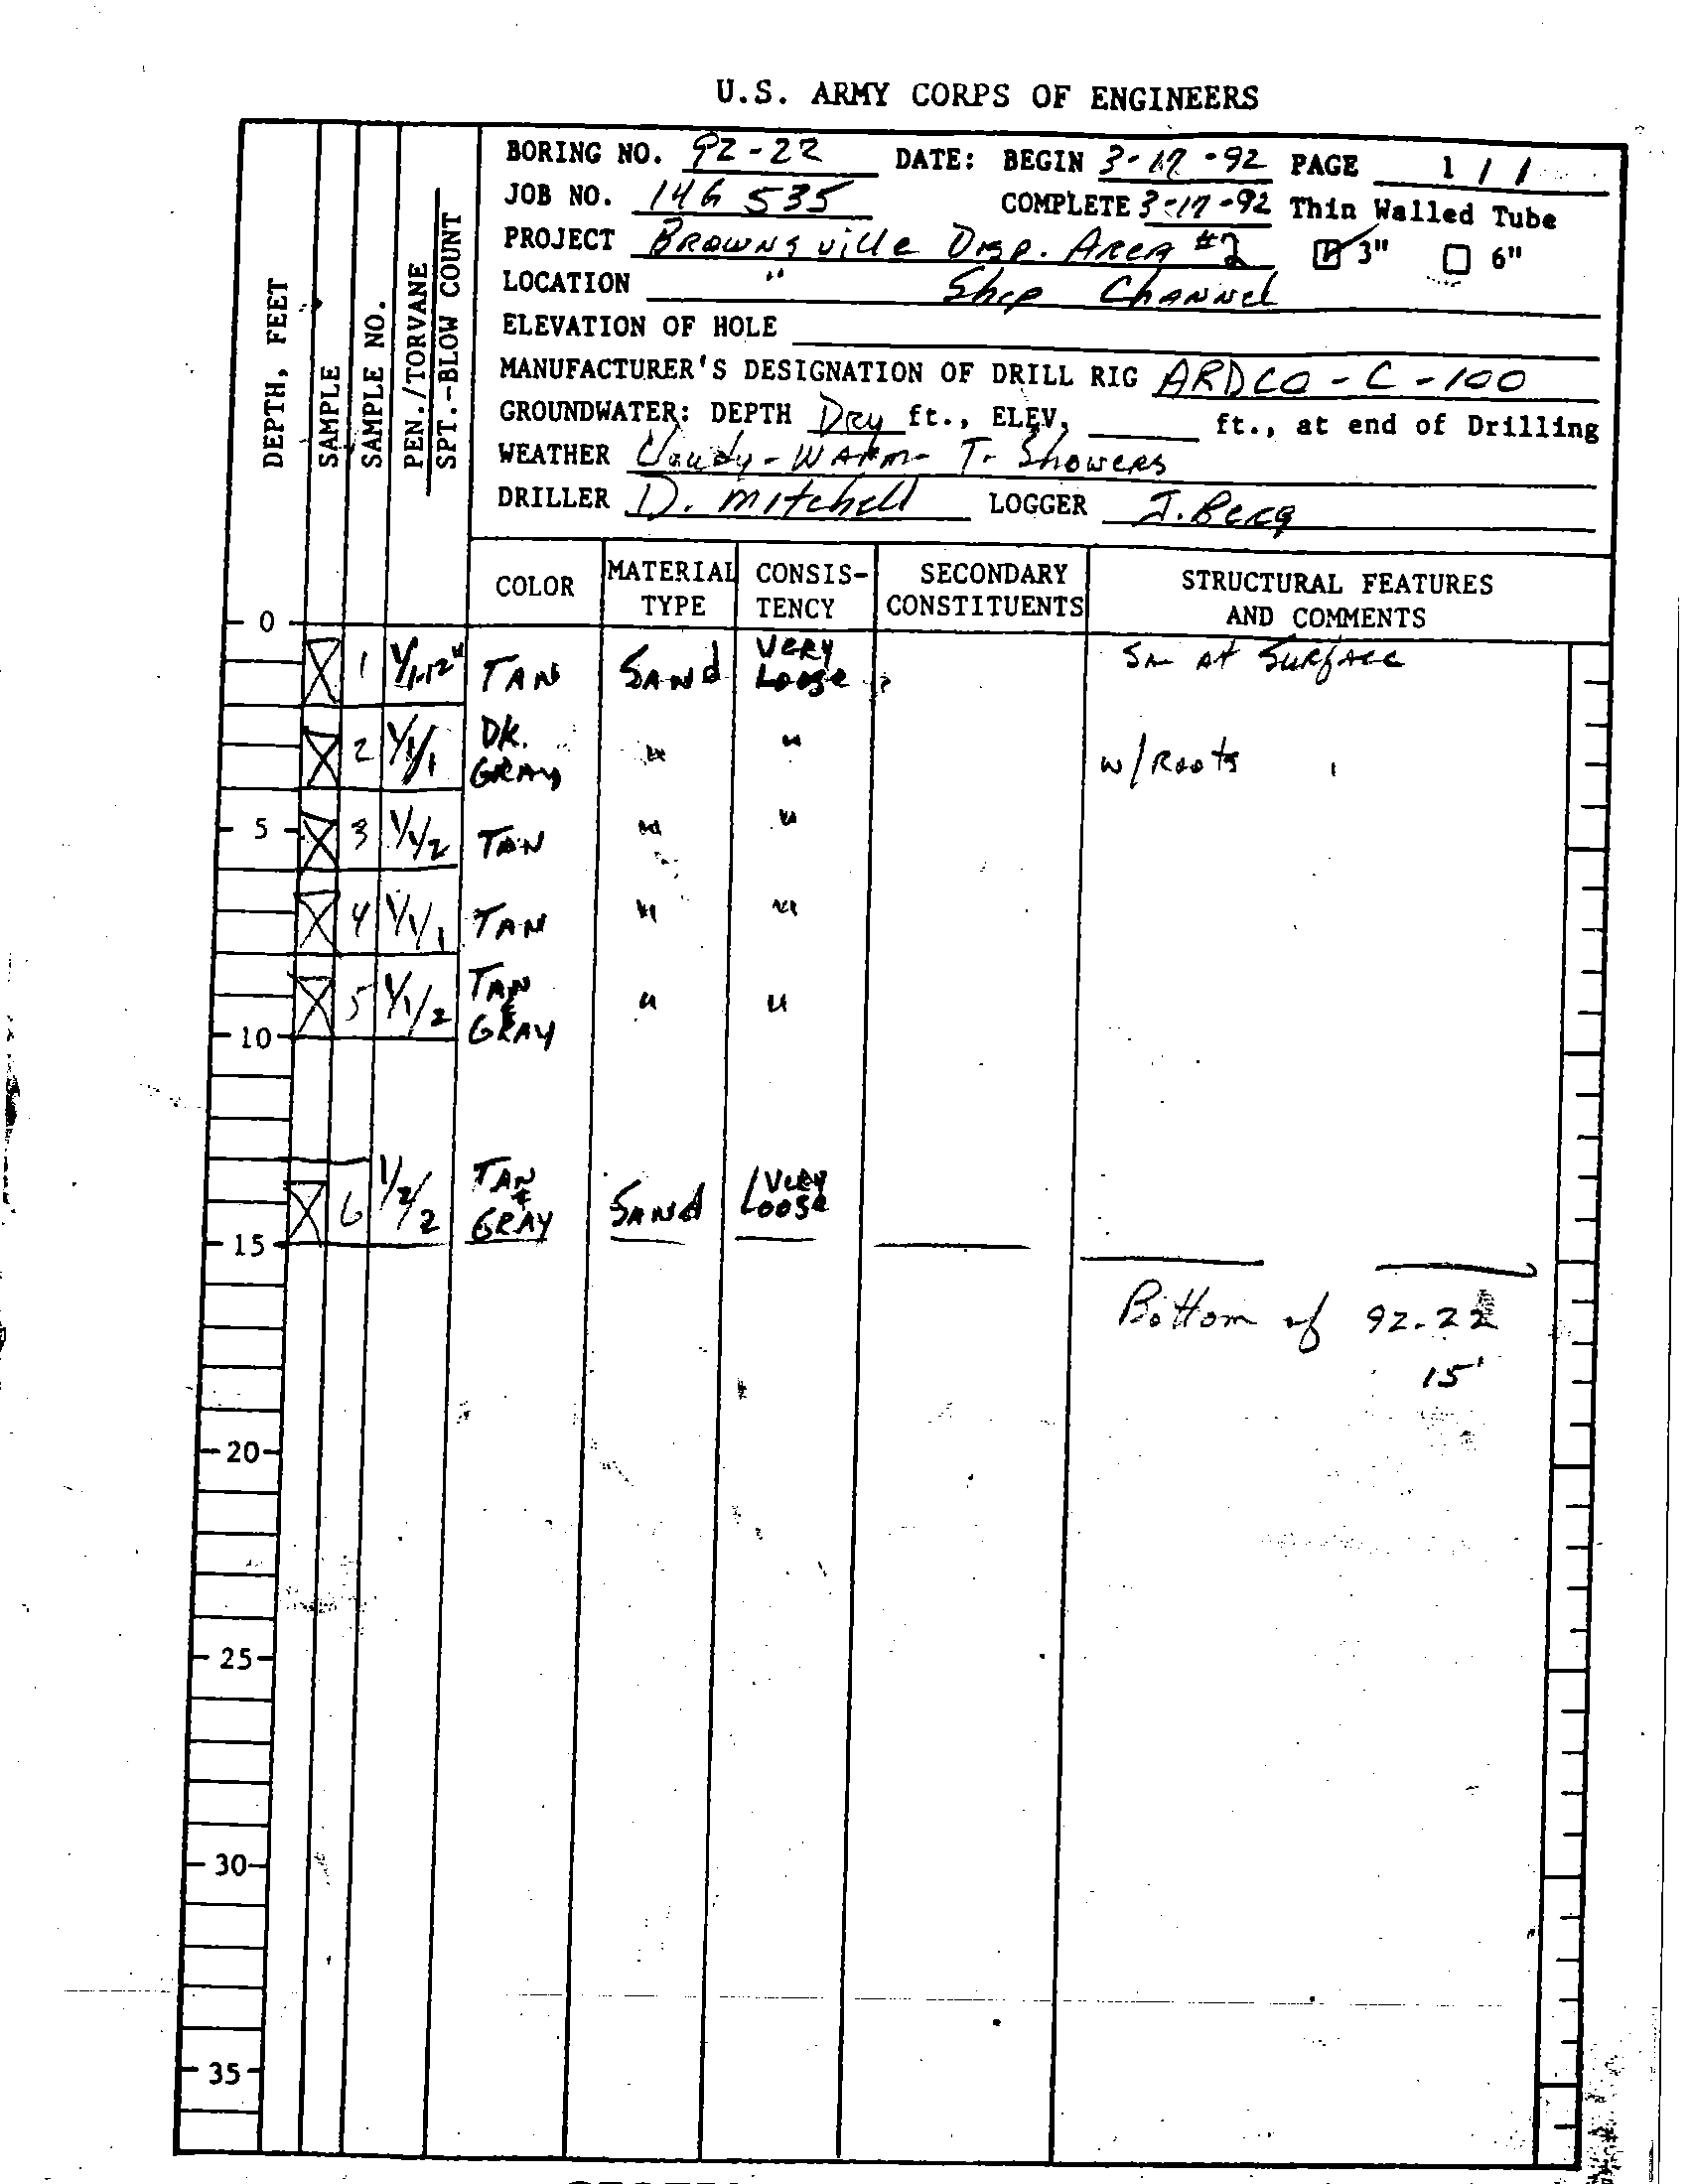 U.S. ARMY CORPS OF ENGINEERS
BORING NO. 92-22 DATE: BEGIN 3-17-92 PAGE 1 / 1
JOB NO. 146 535 COMPLETE 3-17-92 Thin Walled Tube
PROJECT Brownsville Disp. Area #2 3" 6"
LOCATION " Ship Channel
ELEVATION OF HOLE
MANUFACTURER'S DESIGNATION OF DRILL RIG ARDCO-C-100
GROUNDWATER: DEPTH Dry ft., ELEV. ft., at end of Drilling
WEATHER Cloudy-Warm- T-Showers
DRILLER D. Mitchell LOGGER J. Berg
DEPTH, FEET
SAMPLE
SAMPLE NO.
PEN./TORVANE
SPT.-BLOW COUNT
COLOR MATERIAL TYPE CONSISTENCY SECONDARY CONSTITUENTS STRUCTURAL FEATURES AND COMMENTS
0
1 1/1-12" TAN SAND VERY LOOSE at Surface
2 1/1/1 DK. GRAY " " w/ Roots
5
3 1/1/2 TAN " "
4 1/1/1 TAN " "
5 1/1/2 TAN & GRAY " "
10
6 1/2/2 TAN & GRAY SAND VERY LOOSE
15
Bottom of 92-22
15'
20
25
30
35